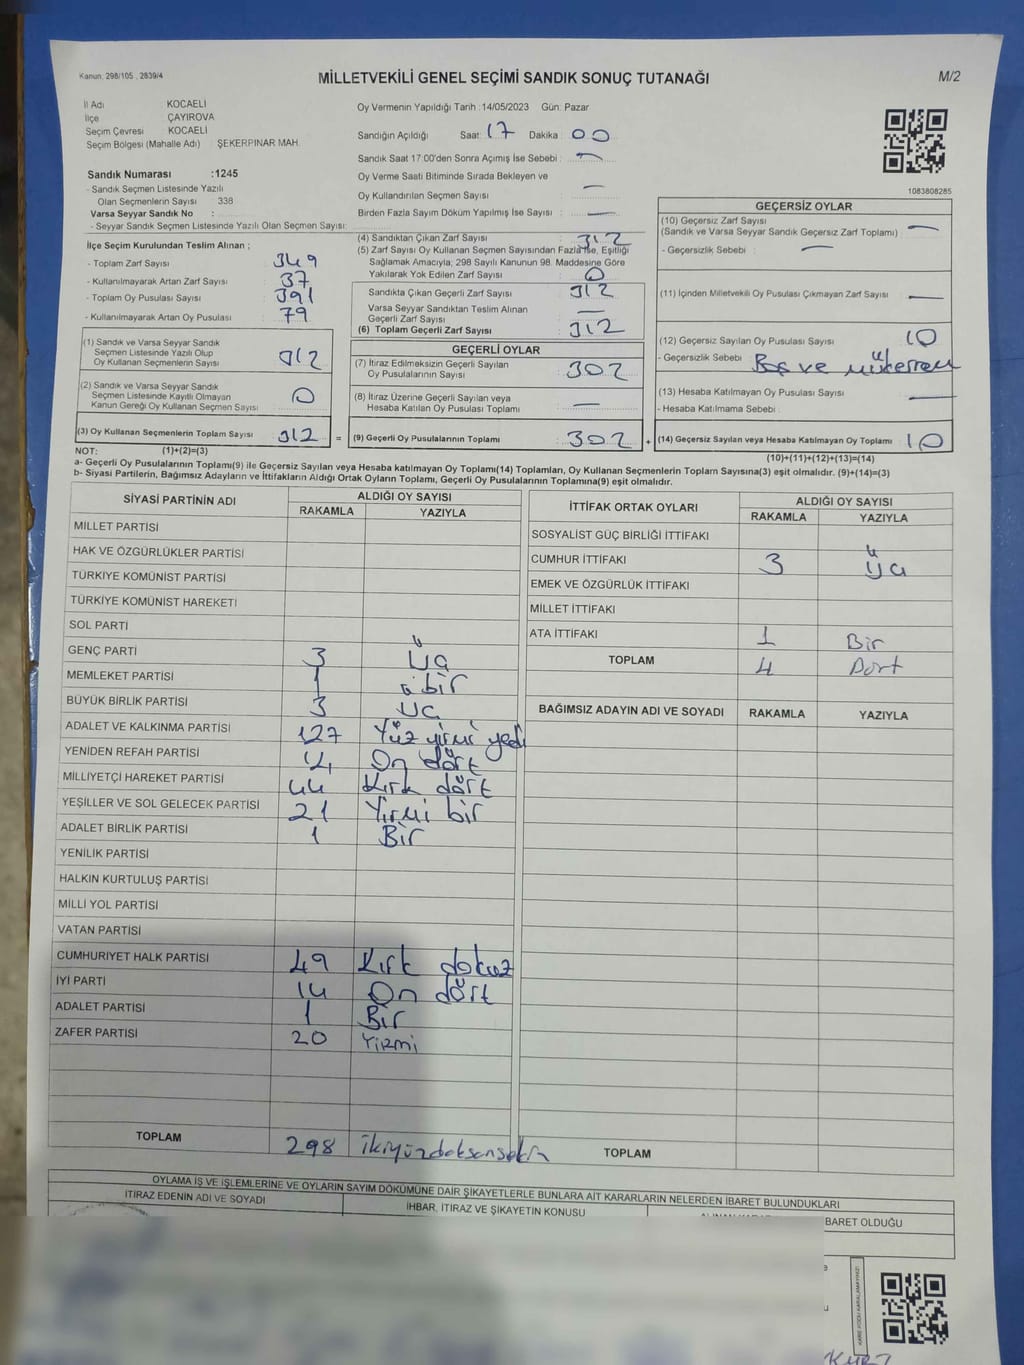 Kanun, 298/105 , 2839/4
MİLLETVEKİLİ GENEL SEÇİMİ SANDIK SONUÇ TUTANAĞI
M/2
İl Adı KOCAELİ
İlçe ÇAYIROVA
Seçim Çevresi KOCAELİ
Seçim Bölgesi (Mahalle Adı) : ŞEKERPINAR MAH.
Sandık Numarası :1245
- Sandık Seçmen Listesinde Yazılı
Olan Seçmenlerin Sayısı 338
Varsa Seyyar Sandık No :
- Seyyar Sandık Seçmen Listesinde Yazılı Olan Seçmen Sayısı:
İlçe Seçim Kurulundan Teslim Alınan ;
- Toplam Zarf Sayısı 349
- Kullanılmayarak Artan Zarf Sayısı : 37
- Toplam Oy Pusulası Sayısı 391
- Kullanılmayarak Artan Oy Pusulası 79
(1) Sandık ve Varsa Seyyar Sandık
Seçmen Listesinde Yazılı Olup
Oy Kullanan Seçmenlerin Sayısı 312
(2) Sandık ve Varsa Seyyar Sandık
Seçmen Listesinde Kayıtlı Olmayan
Kanun Gereği Oy Kullanan Seçmen Sayısı 0
(3) Oy Kullanan Seçmenlerin Toplam Sayısı 312 =
Oy Vermenin Yapıldığı Tarih :14/05/2023 Gün: Pazar
Sandığın Açıldığı Saat: 17 Dakika : 00
Sandık Saat 17:00'den Sonra Açımış İse Sebebi : —
Oy Verme Saati Bitiminde Sırada Bekleyen ve
Oy Kullandırılan Seçmen Sayısı —
Birden Fazla Sayım Döküm Yapılmış İse Sayısı : —
(4) Sandıktan Çıkan Zarf Sayısı 312
(5) Zarf Sayısı Oy Kullanan Seçmen Sayısından Fazla İse, Eşitliği
Sağlamak Amacıyla, 298 Sayılı Kanunun 98. Maddesine Göre
Yakılarak Yok Edilen Zarf Sayısı : 0
Sandıkta Çıkan Geçerli Zarf Sayısı 312
Varsa Seyyar Sandıktan Teslim Alınan
Geçerli Zarf Sayısı —
(6) Toplam Geçerli Zarf Sayısı 312
GEÇERLİ OYLAR
(7) İtiraz Edilmeksizin Geçerli Sayılan
Oy Pusulalarının Sayısı 302
(8) İtiraz Üzerine Geçerli Sayılan veya
Hesaba Katılan Oy Pusulası Toplamı —
(9) Geçerli Oy Pusulalarının Toplamı 302 +
1083808285
GEÇERSİZ OYLAR
(10) Geçersiz Zarf Sayısı
(Sandık ve Varsa Seyyar Sandık Geçersiz Zarf Toplamı) : —
- Geçersizlik Sebebi : —
(11) İçinden Milletvekili Oy Pusulası Çıkmayan Zarf Sayısı : —
(12) Geçersiz Sayılan Oy Pusulası Sayısı 10
- Geçersizlik Sebebi : Boş ve mükerrer
(13) Hesaba Katılmayan Oy Pusulası Sayısı —
- Hesaba Katılmama Sebebi :
(14) Geçersiz Sayılan veya Hesaba Katılmayan Oy Toplamı 10
NOT: (1)+(2)=(3)
(10)+(11)+(12)+(13)=(14)
a- Geçerli Oy Pusulalarının Toplamı(9) ile Geçersiz Sayılan veya Hesaba katılmayan Oy Toplamı(14) Toplamları, Oy Kullanan Seçmenlerin Toplam Sayısına(3) eşit olmalıdır. (9)+(14)=(3)
b- Siyasi Partilerin, Bağımsız Adayların ve İttifakların Aldığı Ortak Oyların Toplamı, Geçerli Oy Pusulalarının Toplamına(9) eşit olmalıdır.
SİYASİ PARTİNİN ADI ALDIĞI OY SAYISI
RAKAMLA YAZIYLA
MİLLET PARTİSİ
HAK VE ÖZGÜRLÜKLER PARTİSİ
TÜRKİYE KOMÜNİST PARTİSİ
TÜRKİYE KOMÜNİST HAREKETİ
SOL PARTİ
GENÇ PARTİ 3 Üç
MEMLEKET PARTİSİ 1 bir
BÜYÜK BİRLİK PARTİSİ 3 Üç
ADALET VE KALKINMA PARTİSİ 127 Yüz yirmi yedi
YENİDEN REFAH PARTİSİ 14 On dört
MİLLİYETÇİ HAREKET PARTİSİ 44 Kırk dört
YEŞİLLER VE SOL GELECEK PARTİSİ 21 Yirmi bir
ADALET BİRLİK PARTİSİ 1 Bir
YENİLİK PARTİSİ
HALKIN KURTULUŞ PARTİSİ
MİLLİ YOL PARTİSİ
VATAN PARTİSİ
CUMHURİYET HALK PARTİSİ 49 Kırk dokuz
İYİ PARTİ 14 On dört
ADALET PARTİSİ 1 Bir
ZAFER PARTİSİ 20 Yirmi
TOPLAM 298 ikiyüzdoksansekiz
İTTİFAK ORTAK OYLARI ALDIĞI OY SAYISI
RAKAMLA YAZIYLA
SOSYALİST GÜÇ BİRLİĞİ İTTİFAKI
CUMHUR İTTİFAKI 3 Üç
EMEK VE ÖZGÜRLÜK İTTİFAKI
MİLLET İTTİFAKI
ATA İTTİFAKI 1 Bir
TOPLAM 4 Dört
BAĞIMSIZ ADAYIN ADI VE SOYADI RAKAMLA YAZIYLA
TOPLAM
OYLAMA İŞ VE İŞLEMLERİNE VE OYLARIN SAYIM DÖKÜMÜNE DAİR ŞİKAYETLERLE BUNLARA AİT KARARLARIN NELERDEN İBARET BULUNDUKLARI
İTİRAZ EDENİN ADI VE SOYADI
İHBAR, İTİRAZ VE ŞİKAYETİN KONUSU
BARET OLDUĞU
KURT